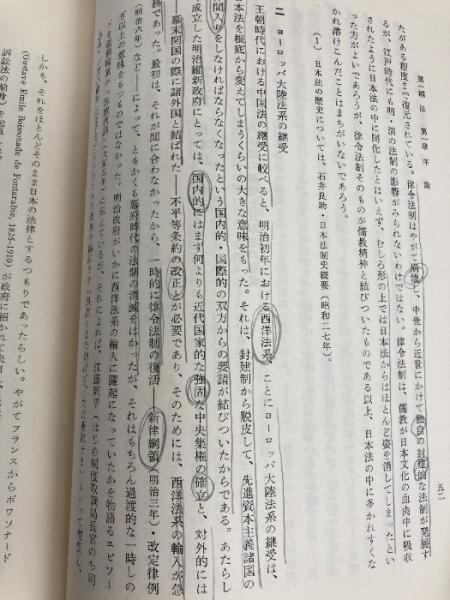 第一編 法　第一章 序論
五二
たがある程度まで復元されている。律令法制はやがて崩壊し、中世から近世にかけて独自の封建的な法制が発展す
るが、江戸時代にも明・清の法制の影響がみられないわけではない。律令法制は、儒教が日本文化の血肉中に吸収
されたように日本法の中に同化したとはいえず、むしろ形の上では日本法からはほとんど姿を消してしまったとい
った方がよいであろうが、律令法制そのものが儒教精神と結びついたものである以上、日本法の中に多かれすくな
かれ溶けこんだことはまちがいないであろう。
(1) 日本法の歴史については、石井良助・日本法制史概要(昭和二七年)。
二 ヨーロッパ大陸法系の継受
王朝時代における中国法の継受に較べると、明治初年における西洋法系、ことにヨーロッパ大陸法系の継受は、
本法を根底から変えてしまうくらいの大きな意味をもった。それは、封建制から脱皮して、先進資本主義諸国の
間入りをしなければならなくなったという国内的・国際的の双方からの要請が結びついたからである。あたらし
成立した明治維新政府にとっては、国内的にはまず何よりも近代国家的な強固な中央集権の確立と、対外的には
幕末開国の際に諸外国と結ばれた――不平等条約の改正とが必要であり、そのためには、西洋法系の輸入が急
務であった。最初は、それが間に合わなかったから、一時的に律令法制の復活――新律綱領(明治三年)・改定律例
(明治六年)など――によって、ともかくも幕府時代の法制の消滅をはかったが、それはもちろん過渡的な一時しの
ぎ以上の意味をもつものではなかった。明治政府がいかに西洋法系の輸入に躍起になっていたかを物語るエピソー
(大正五年)に伝えているが、それによれば、江藤新平(はじめ制度取調局長官のち司
しかも、それをほとんどそのまま日本の法律とするつもりであったらしい。やがてフランスからボワソナード
(Gustave Emile Boissonade de Fontarabie, 1825-1910) が政府に招かれて来日し
訴訟法の前身)を起草し